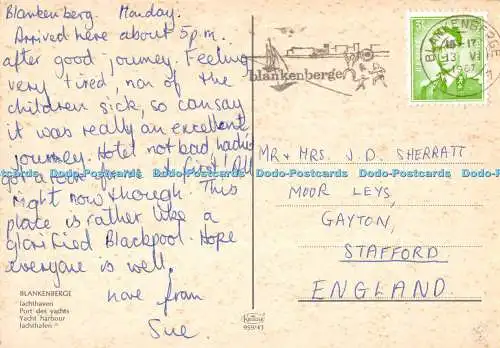 Blankenberg Monday.
Arrived here about 5pm.
after good journey. Feeling
very tired, non of the
children sick, so can say
it was really an excellent
journey. Hotel not bad hadn't
got a room for us at first! All
right now though. This
place is rather like a
glorified Blackpool. Hope
everyone is well.
love from
Sue
BLANKENBERGE
Jachthaven
Port des yachts
Yacht harbour
Jachthafen
959/41
blankenberge
BLANKENBERGE
15-17
13 VI
1967
MR & MRS. J. D. SHERRATT
MOOR LEYS,
GAYTON,
STAFFORD
ENGLAND.
Dodo-Postcards Dodo-Postcards Dodo-Postcards Dodo-Postcards